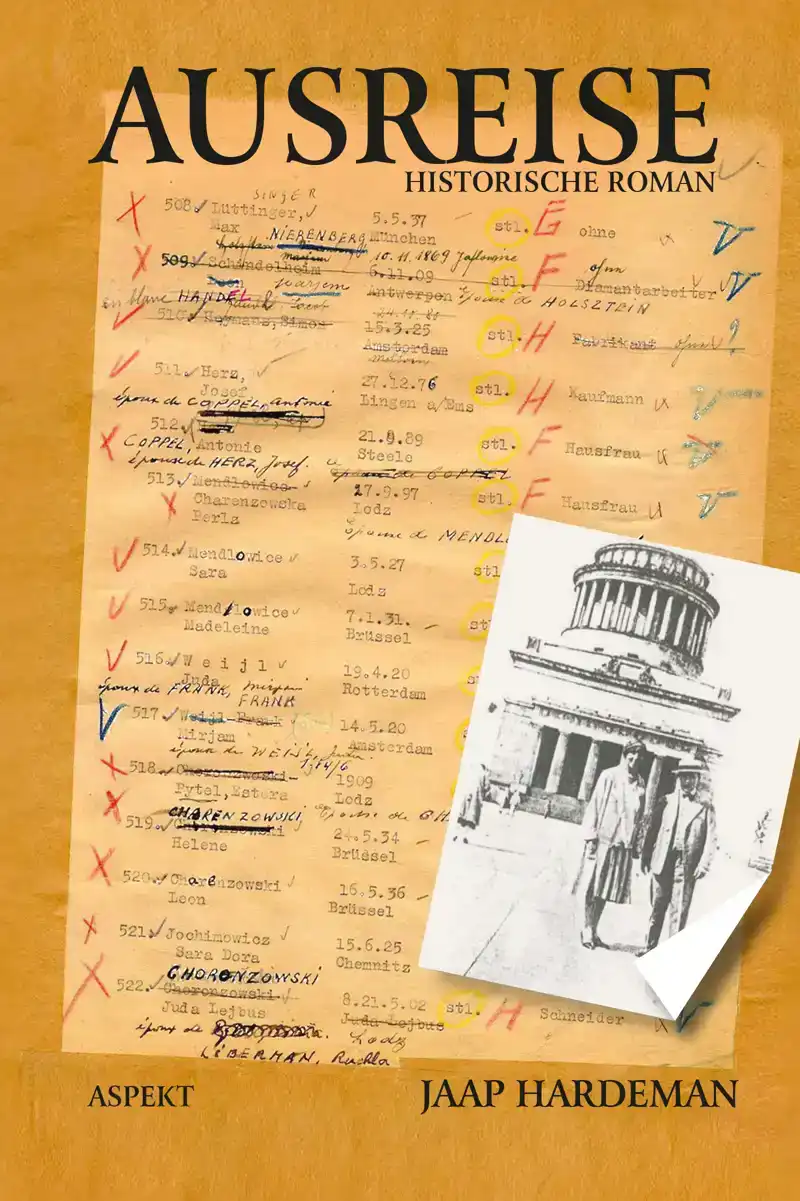 AUSREISE
HISTORISCHE ROMAN
SINGER
508. Luttinger, 5.5.37 stl. G ohne
Max München
NIERENBERG
10.11.1869
509. Schandelheim 6.11.09 stl. F Diamantarbeiter
Antwerpen Epouse de HOLSZTEIN
En blanc HANDEL
510. Heymans, Simon 15.3.25 stl. H Fabrikant ?
Amsterdam
511. Herz, 27.12.76 stl. H Kaufmann
Josef Lingen a/Ems
époux de COPPEL, Antonie
512. 21.9.89 stl. F Hausfrau
COPPEL, Antonie Steele
épouse de HERZ, Josef.
513. Mendlowice 27.9.97 stl. F Hausfrau
Charenzowska Lodz
Perla
Epouse de MENDLO
514. Mendlowice 3.5.27 stl
Sara Lodz
515. Mendlowice 7.1.31. st
Madeleine Brüssel
516. Weijl 19.4.20
Juda Rotterdam
époux de FRANK, Mirjam
FRANK
517. Weijl-Frank 14.5.20
Mirjam Amsterdam
épouse de WEIJL, Juda
518. Choronzowski 1909
Rytel, Estera Lodz
CHARENZOWSKI, Epouse de CH
519. Choronzowski 24.5.34
Helene Brüssel
520. Charenzowski 16.5.36
Leon Brüssel
521. Jochimowicz 15.6.25
Sara Dora Chemnitz
CHORONZOWSKI
522. Choronzowski 8.21.5.02 stl. H Schneider
Juda Lejbus Juda Lejbus
époux de Lodz
LIBERMAN, Ruchla
ASPEKT
JAAP HARDEMAN